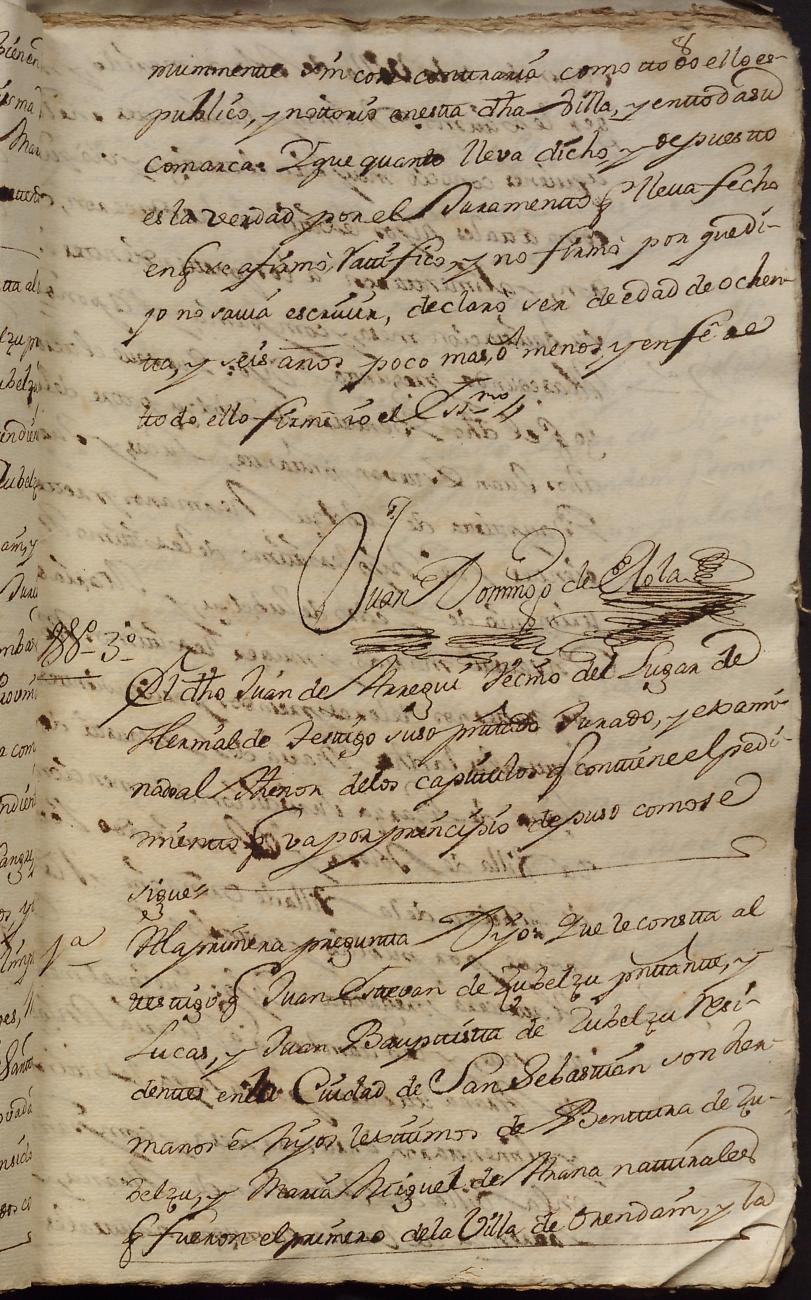 8
munmente sin cosa contraria como ttodo ello es
publico, y nottorio enestta dha Villa, y entoda su
comarca. Y que quanto lleva dicho, y depuestto
es la verdad por el Juramento q lleva fecho
en q se afirmó, Ratifico, y no firmó por que di-
jo no savia escriuir, declaro ser de edad de ochen-
tta, y seis años poco mas, ó menos, y en fee de
ttodo ello firme io el Essno
Juan Domingo de Olola
3º
El dho Juan de Arregui Vecino del Lugar de
Hernialde Testigo suso presentado Jurado, y exami-
nado al thenor delos capitulos q contiene el pedi-
mento q va por principio depuso como se
sigue
1ª
A la primera pregunta Dijo: Que le constta al
testigo q Juan Estevan de Zubelzu presentante, y
Lucas, y Juan Bauptista de Zubelzu resi-
dentes en la Ciudad de San Sebastian son her-
manos é hijos lexitimos de Benttura de Zu-
belzu, y Maria Miguel de Arana natturales
q fueron el primero de la Villa de Orendain, y la